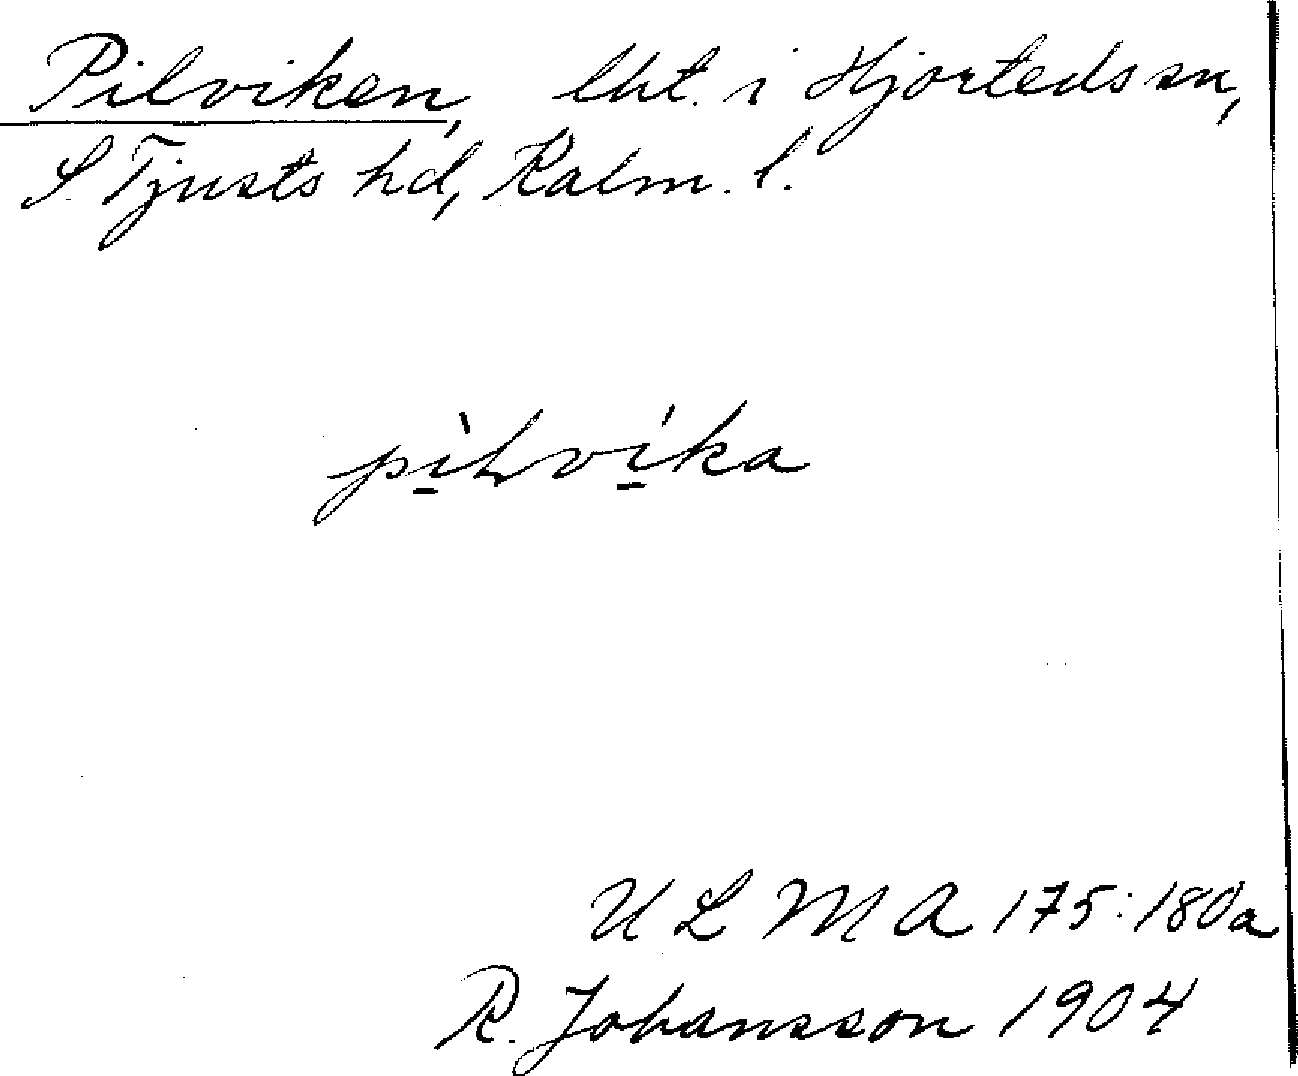 Pilviken, lht. i Hjorteds sn,
S Tjusts hd, Kalm. l.
pìlvíka
ULMA 175:180a
R. Johansson 1904